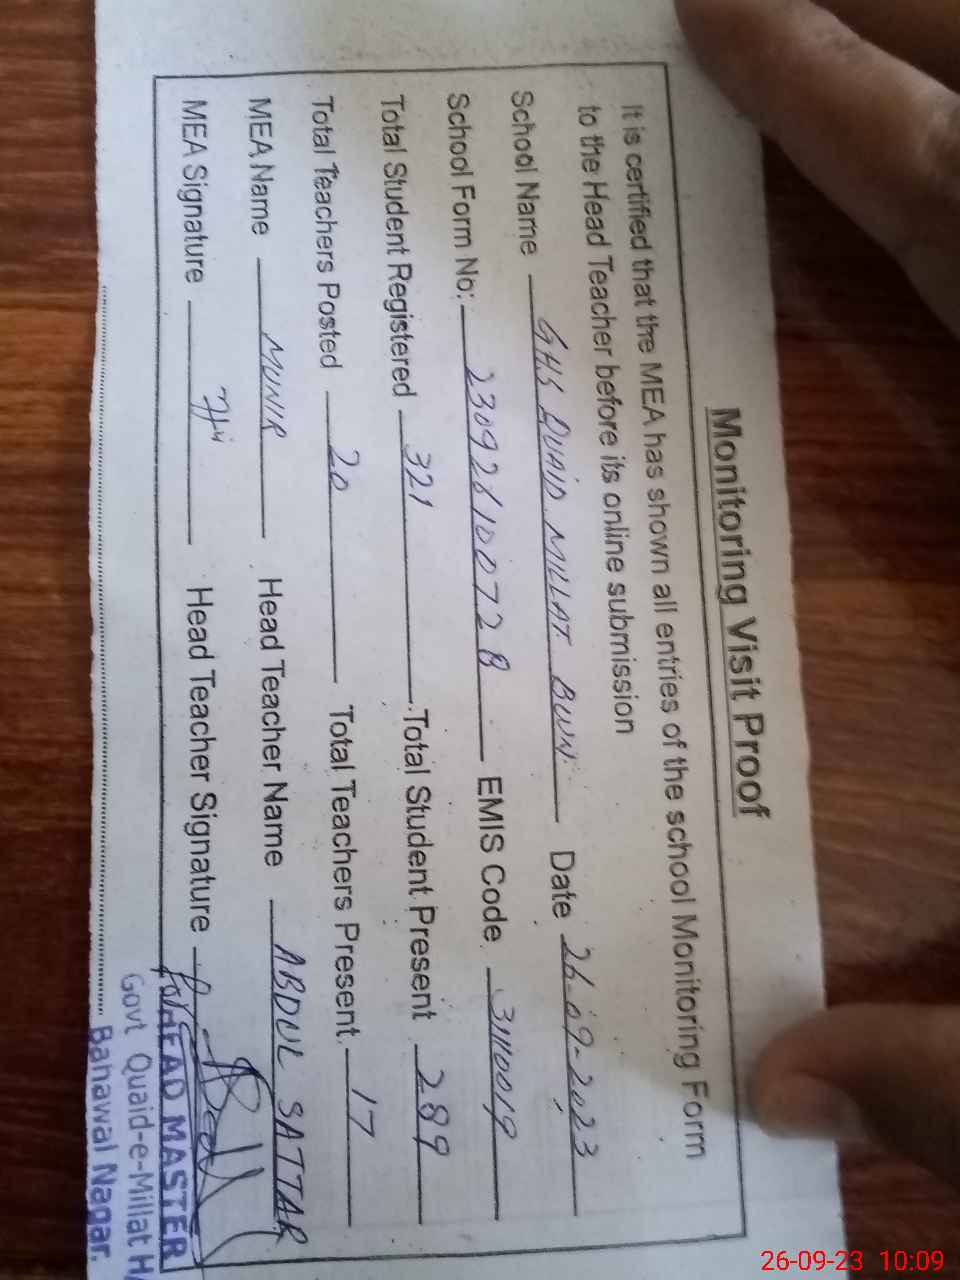 Monitoring Visit Proof
It is certified that the MEA has shown all entries of the school Monitoring Form
to the Head Teacher before its online submission
School Name GHS QUAID MILLAT BWN Date 26-09-2023
School Form No: 230926100728 EMIS Code 31110019
Total Student Registered 321 Total Student Present 289
Total Teachers Posted 20 Total Teachers Present 17
MEA Name MUNIR Head Teacher Name ABDUL SATTAR
MEA Signature Head Teacher Signature
for HEAD MASTER
Govt Quaid-e-Millat
Bahawal Nagar.
26-09-23 10:09